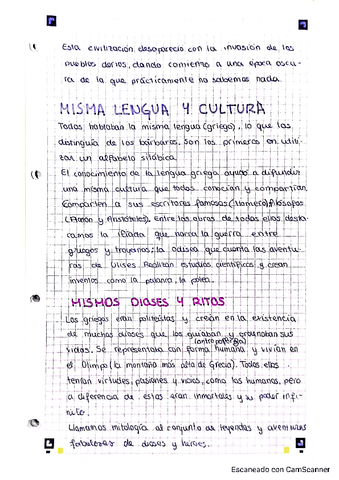 Esta civilización desapareció con la invasión de los
pueblos dorios, dando comienzo a una época oscu-
ra de la que prácticamente no sabemos nada.
MISMA LENGUA Y CULTURA
Todos hablaban la misma lengua (griego), lo que los
distinguía de los bárbaros. Son los primeros en utili-
zar un alfabeto silábico.
El conocimiento de la lengua griega ayudó a difundir
una misma cultura que todos conocían y compartían.
Comparten a sus escritores famosos (Homero) filósofos
(Platón y Aristóteles), entre las obras de todos ellos desta-
camos la Ilíada que narra la guerra entre
griegos y troyanos; la odisea que cuenta las aventu-
ras de Ulises. Realizan estudios científicos y crean
inventos como la palanca, la polea.
MISMOS DIOSES Y RITOS
Los griegos eran politeístas y creían en la existencia
de muchos dioses que los guiaban y
sus
(antropomorfa)
vidas. Se representaba con forma humana y vivían en
el Olimpo (la montaña más alta de Grecia). Todos ellos
tenían virtudes, pasiones y vicios, como los humanos, pero
a diferencia de estos eran inmortales y su poder infi-
nito.
Llamamos mitología al conjunto de leyendas y aventuras
fabulosas de dioses y héroes.
Escaneado con CamScanner